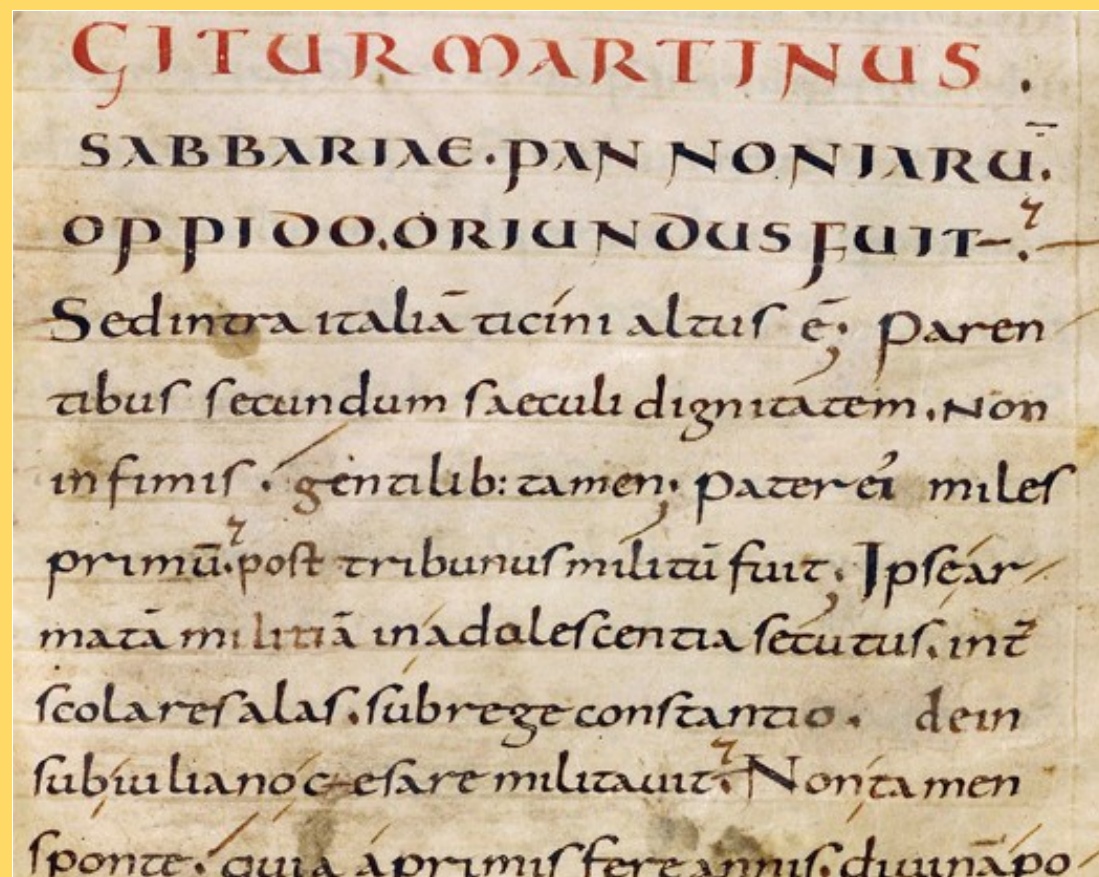 GITUR MARTINUS.
SABBARIAE. PANNONIARŪ.
OPPIDO. ORIUNDUS FUIT.
Sed intra italiā ticini altus ē; Paren
tibus secundum saeculi dignitatem. Non
infimis. gentilib: tamen; Pater ei' miles
primū. post tribunus militū fuit; Ipse ar
matā militiā in adolescentia secutus. int̄
scolares alas. sub rege constantio. dein
sub iuliano cesare militauit. Non tamen
sponte. quia a primis fere annis. diuinā po